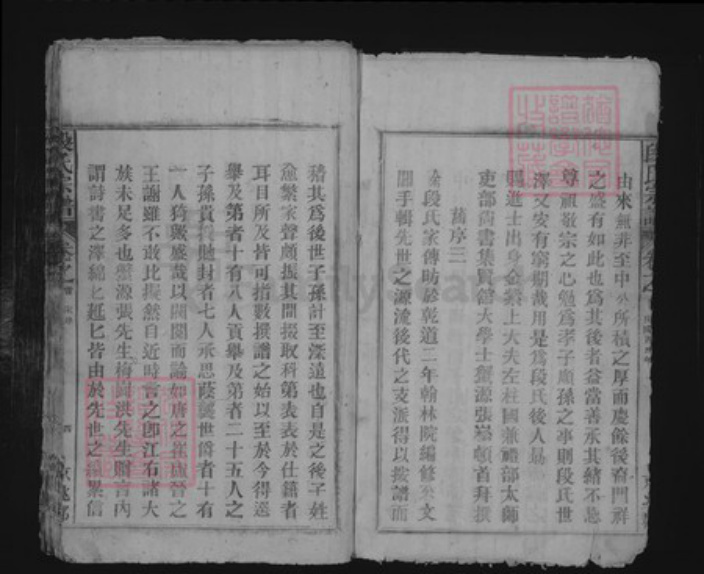 由來無非至中公所積之厚而慶餘後裔門祥
之盛有如此也爲其後者益當善承其緒不忘
尊祖敬宗之心勉爲孝子順孫之事則段氏世
澤又安有窮期哉用是爲段氏後人勗
賜進士出身金紫上大夫左柱國兼禮部太師
吏部尚書集賢館大學士蟹源張 頓首拜撰
舊序三
段氏家傳昉於乾道二年翰林院編修 文
手輯先世之源流後代之支派得以按譜而
稽其爲後世子孫計至深遠也自是之後子姓
愈繁家聲頗振其間掇取科第表表於仕籍者
耳目所及皆可指數撰譜之始以至於今得選
舉及第者十有八人貢舉及第者二十五人之
子孫貴 貤封者七人承恩蔭襲世爵者十有
一人猗歟盛哉以閥閱而論如唐之崔盧晉之
王謝雖不敢比擬然自近時言之卽江右諸大
族未足多也蟹源張先生梅 洪先生贈言內
謂詩書之澤綿匕延匕皆由於先世之 累信
段氏宗譜
卷之
FamilySearch